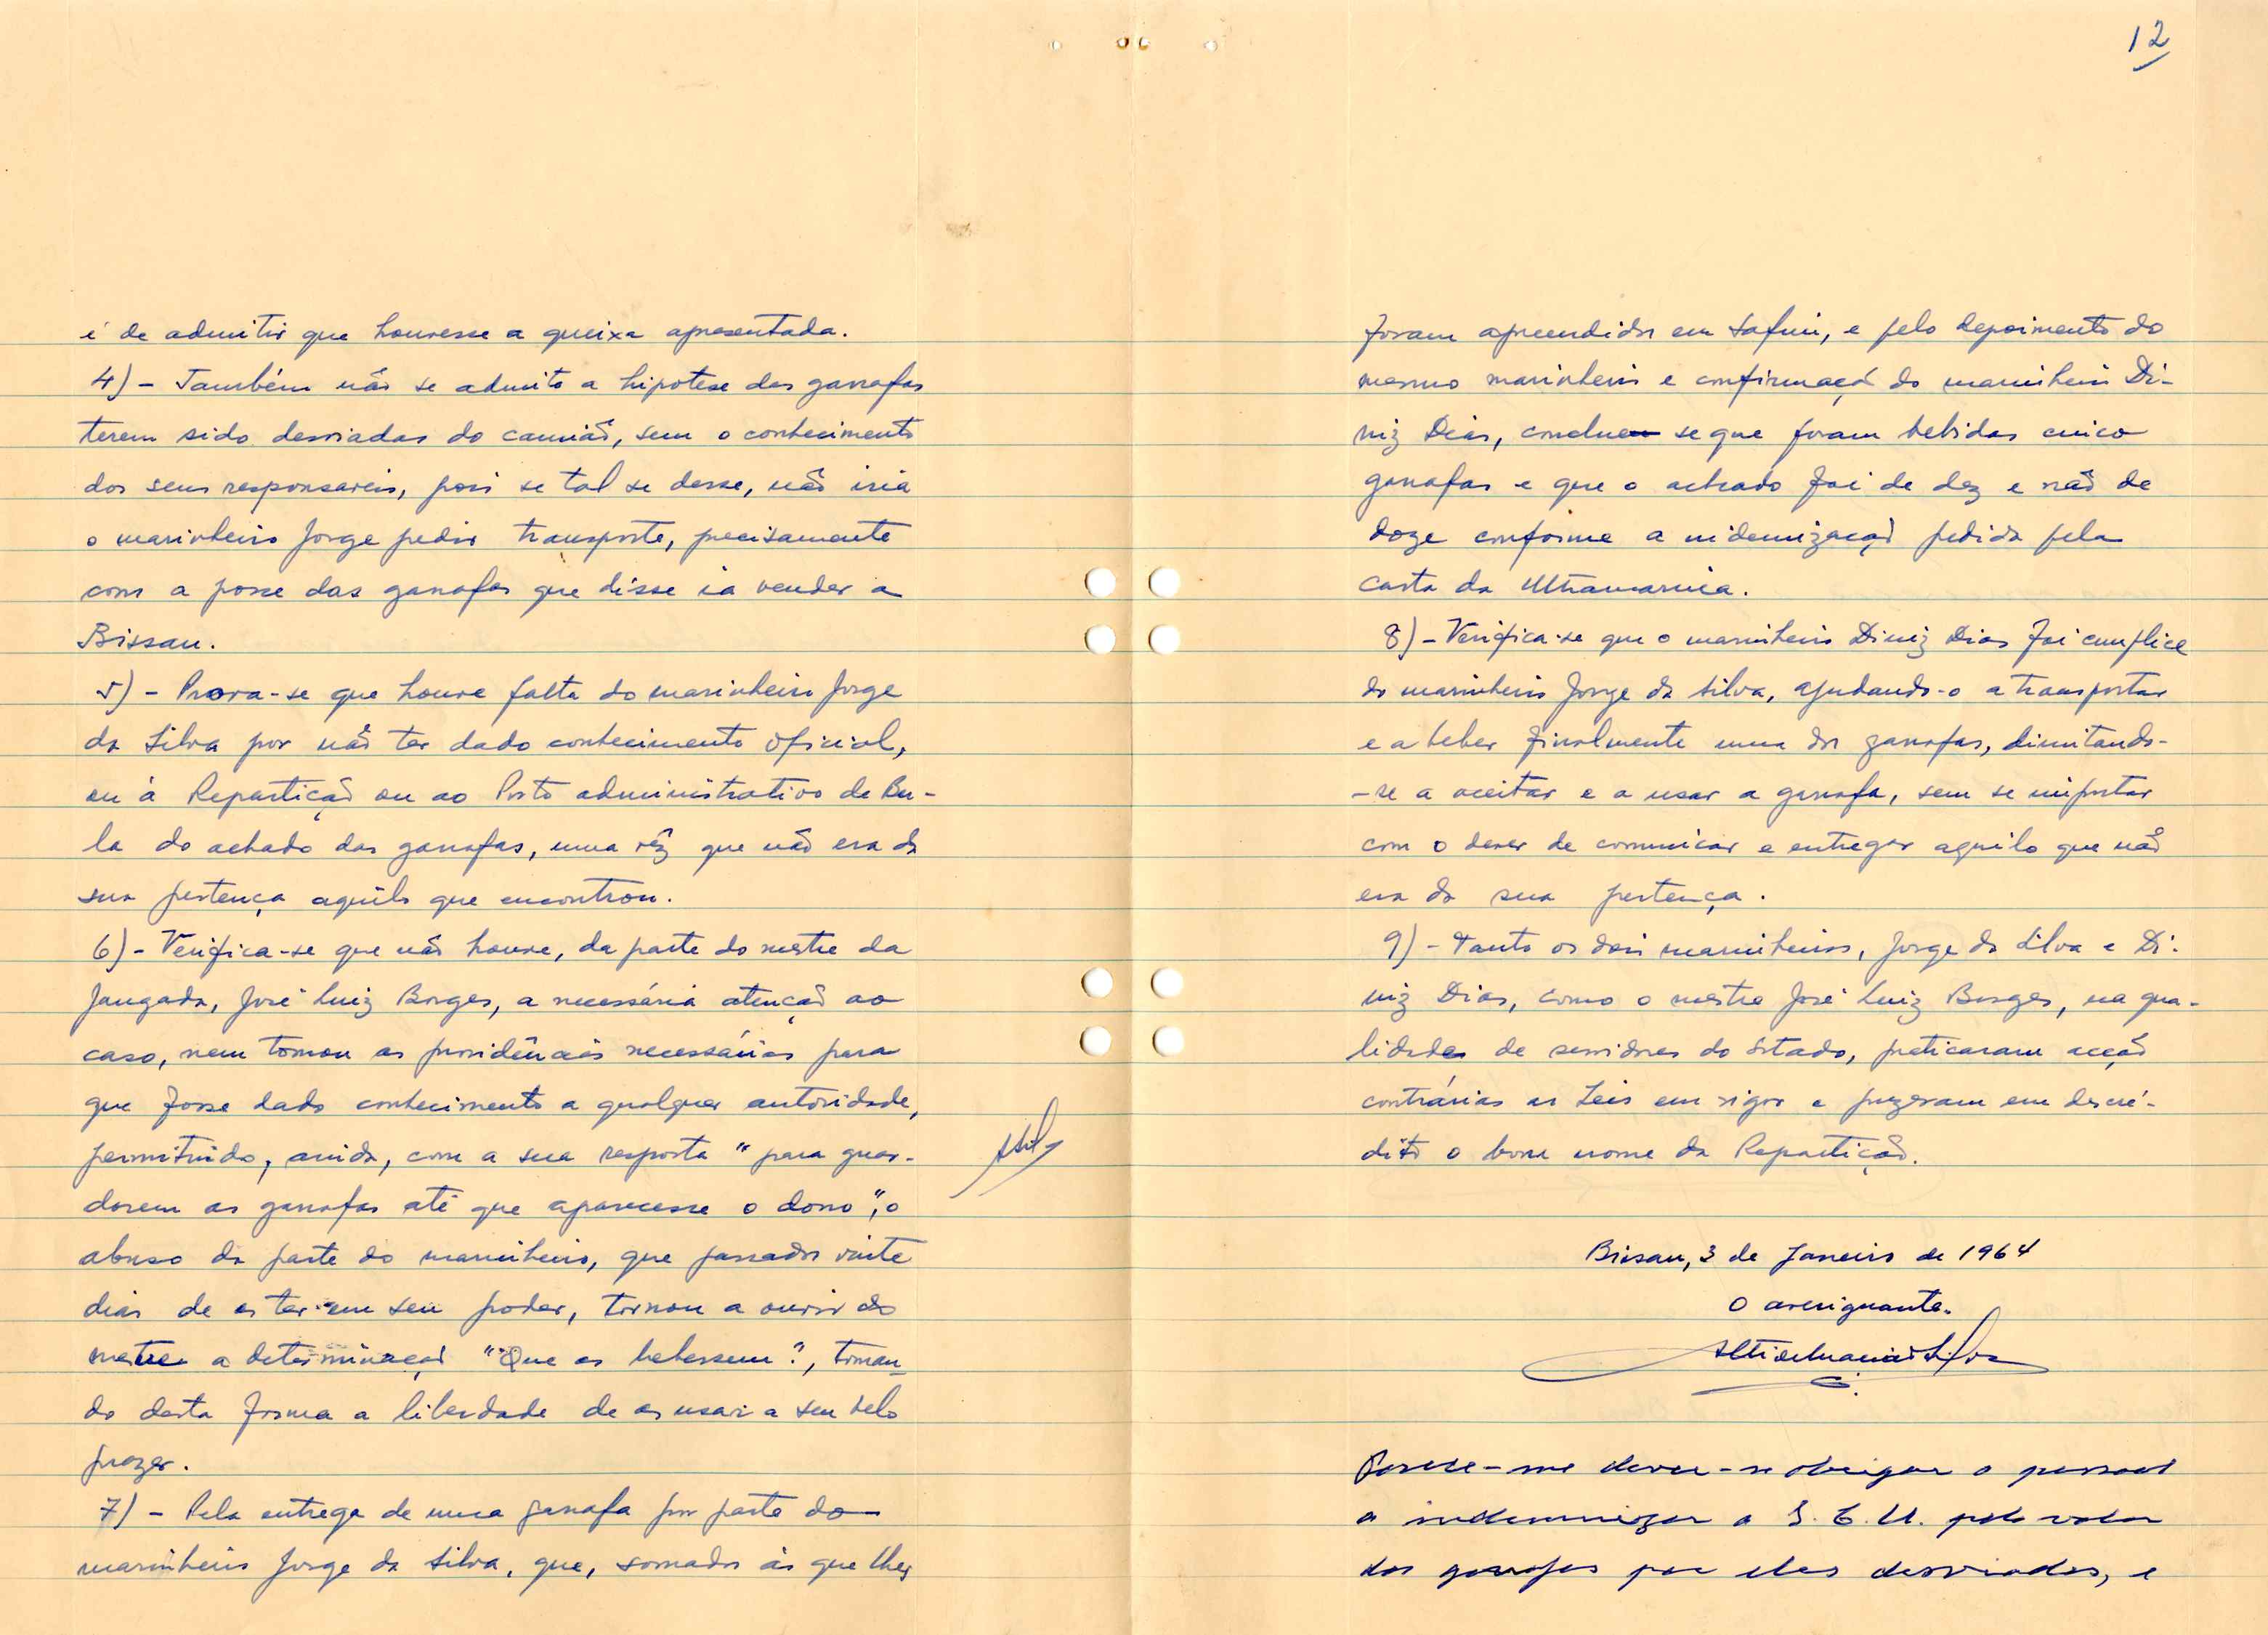 12
é de admitir que houvesse a queixa apresentada.
4) - Também não se admite a hipotese das garrafas
terem sido desviadas do camião, sem o conhecimento
dos seus responsaveis, pois se tal se desse, não iria
o marinheiro Jorge pedir transporte, precisamente
com a posse das garrafas que disse ia vender a
Bissau.
5) - Prova-se que houve falta do marinheiro Jorge
da Silva por não ter dado conhecimento oficial,
ou à Repartição ou ao Posto administrativo de Bu-
la do achado das garrafas, uma vêz que não era da
sua pertença aquilo que encontrou.
6) - Verifica-se que não houve, da parte do mestre da
Jangada, José Luiz Borges, a necessária atenção ao
caso, nem tomou as providências necessárias para
que fosse dado conhecimento a qualquer autoridade,
permitindo, ainda, com a sua resposta "para guar-
darem as garrafas até que aparecesse o dono", o
abuso da parte do marinheiro, que passados vinte
dias de as ter em seu poder, tornou a ouvir do
mestre a determinação "Que as bebessem", toman-
do desta forma a liberdade de as usar a seu belo
prazer.
7) - Pela entrega de uma garrafa por parte do
marinheiro Jorge da Silva, que, somados às que lhes
foram apreendidas em Safim, e pelo depoimento do
mesmo marinheiro e confirmação do marinheiro Di-
niz Dias, conclue se que foram bebidas cinco
garrafas e que o achado foi de dez e não de
doze conforme a indemnização pedida pela
carta da Ultramarina.
8) - Verifica-se que o marinheiro Diniz Dias foi cumplice
do marinheiro Jorge da Silva, ajudando-o a transportar
e a beber finalmente uma das garrafas, limitando-
-se a aceitar e a usar a garrafa, sem se importar
com o dever de comunicar e entregar aquilo que não
era da sua pertença.
9) - Tanto os dois marinheiros, Jorge da Silva e Di-
niz Dias, como o mestre José Luiz Borges, na qua-
lidades de servidores do Estado, praticaram acção
contrárias as Leis em vigor e puzeram em descré-
dito o bom nome da Repartição.
Bissau, 3 de Janeiro de 1964
O averiguante.
Parece-me dever-se obrigar o pessoal
a indemnizar a S. C. U. pelo valor
das garrafas por eles desviadas, e